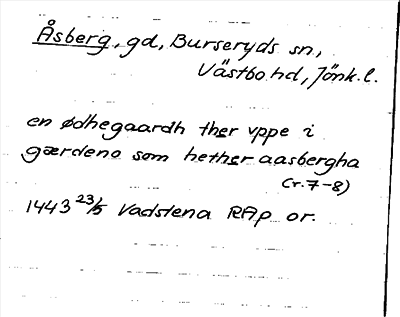 Åsberg, gd, Burseryds sn,
Västbo hd, Jönk. l.
en ødhegaardh ther vppe i
gærdeno som hether aasbergha
(r. 7-8)
1443 23/5 Vadstena RAp or.